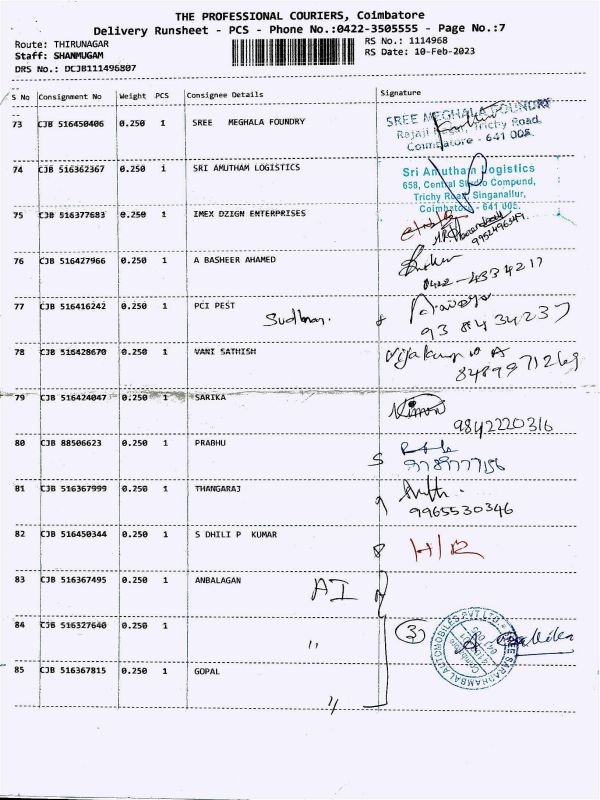 THE PROFESSIONAL COURIERS, Coimbatore
Delivery Runsheet - PCS - Phone No.:0422-3505555 - Page No.:7
Route: THIRUNAGAR RS No.: 1114968
Staff: SHANMUGAM RS Date: 10-Feb-2023
DRS No.: DCJB111496807
S No Consignment No Weight PCS Consignee Details Signature
73 CJB 516450406 0.250 1 SREE MEGHALA FOUNDRY
SREE MEGHALA FOUNDRY
Rajaji Nagar, Trichy Road,
Coimbatore - 641 005.
74 CJB 516362367 0.250 1 SRI AMUTHAM LOGISTICS
Sri Amutham Logistics
658, Central Studio Compund,
Trichy Road Singanallur,
Coimbatore - 641 005.
75 CJB 516377683 0.250 1 IMEX DZIGN ENTERPRISES
9952496549
76 CJB 516427966 0.250 1 A BASHEER AHAMED
0422-4334217
77 CJB 516416242 0.250 1 PCI PEST
938434237
78 CJB 516428670 0.250 1 VANI SATHISH
8489971269
79 CJB 516424047 0.250 1 SARIKA
9842220316
80 CJB 88506623 0.250 1 PRABHU
S
9789777156
81 CJB 516367999 0.250 1 THANGARAJ
9
9965530346
82 CJB 516450344 0.250 1 S DHILI P KUMAR
8 H/R
83 CJB 516367495 0.250 1 ANBALAGAN
AI
84 CJB 516327640 0.250 1
" 3
85 CJB 516367815 0.250 1 GOPAL
"